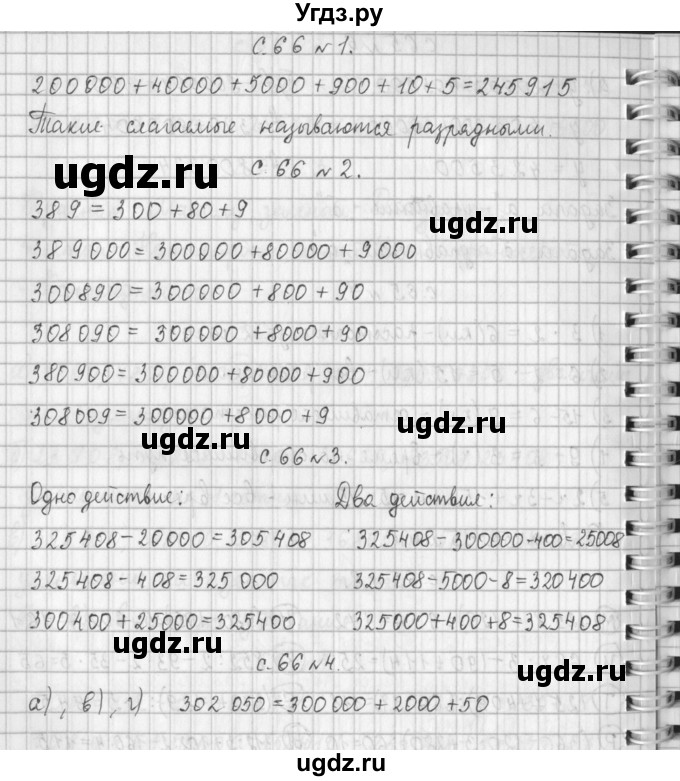 Угдз.ру
с. 66 № 1.
200000 + 40000 + 5000 + 900 + 10 + 5 = 245915
Такие слагаемые называются разрядными.
ugdz.ru
с. 66 № 2.
389 = 300 + 80 + 9
ugdz.ru
389000 = 300000 + 80000 + 9000
300890 = 300000 + 800 + 90
308090 = 300000 + 8000 + 90
380900 = 300000 + 80000 + 900
308009 = 300000 + 8000 + 9
ugdz.ru
ugdz.ru
с. 66 № 3.
Одно действие: Два действия:
325408 - 20000 = 305408 325408 - 300000 - 400 = 25008
325408 - 408 = 325000 325408 - 5000 - 8 = 320400
300400 + 25000 = 325400 325000 + 400 + 8 = 325408
ugdz.ru
ugdz.ru
с. 66 № 4.
а), в), г) 302 050 = 300 000 + 2000 + 50
ugdz.ru